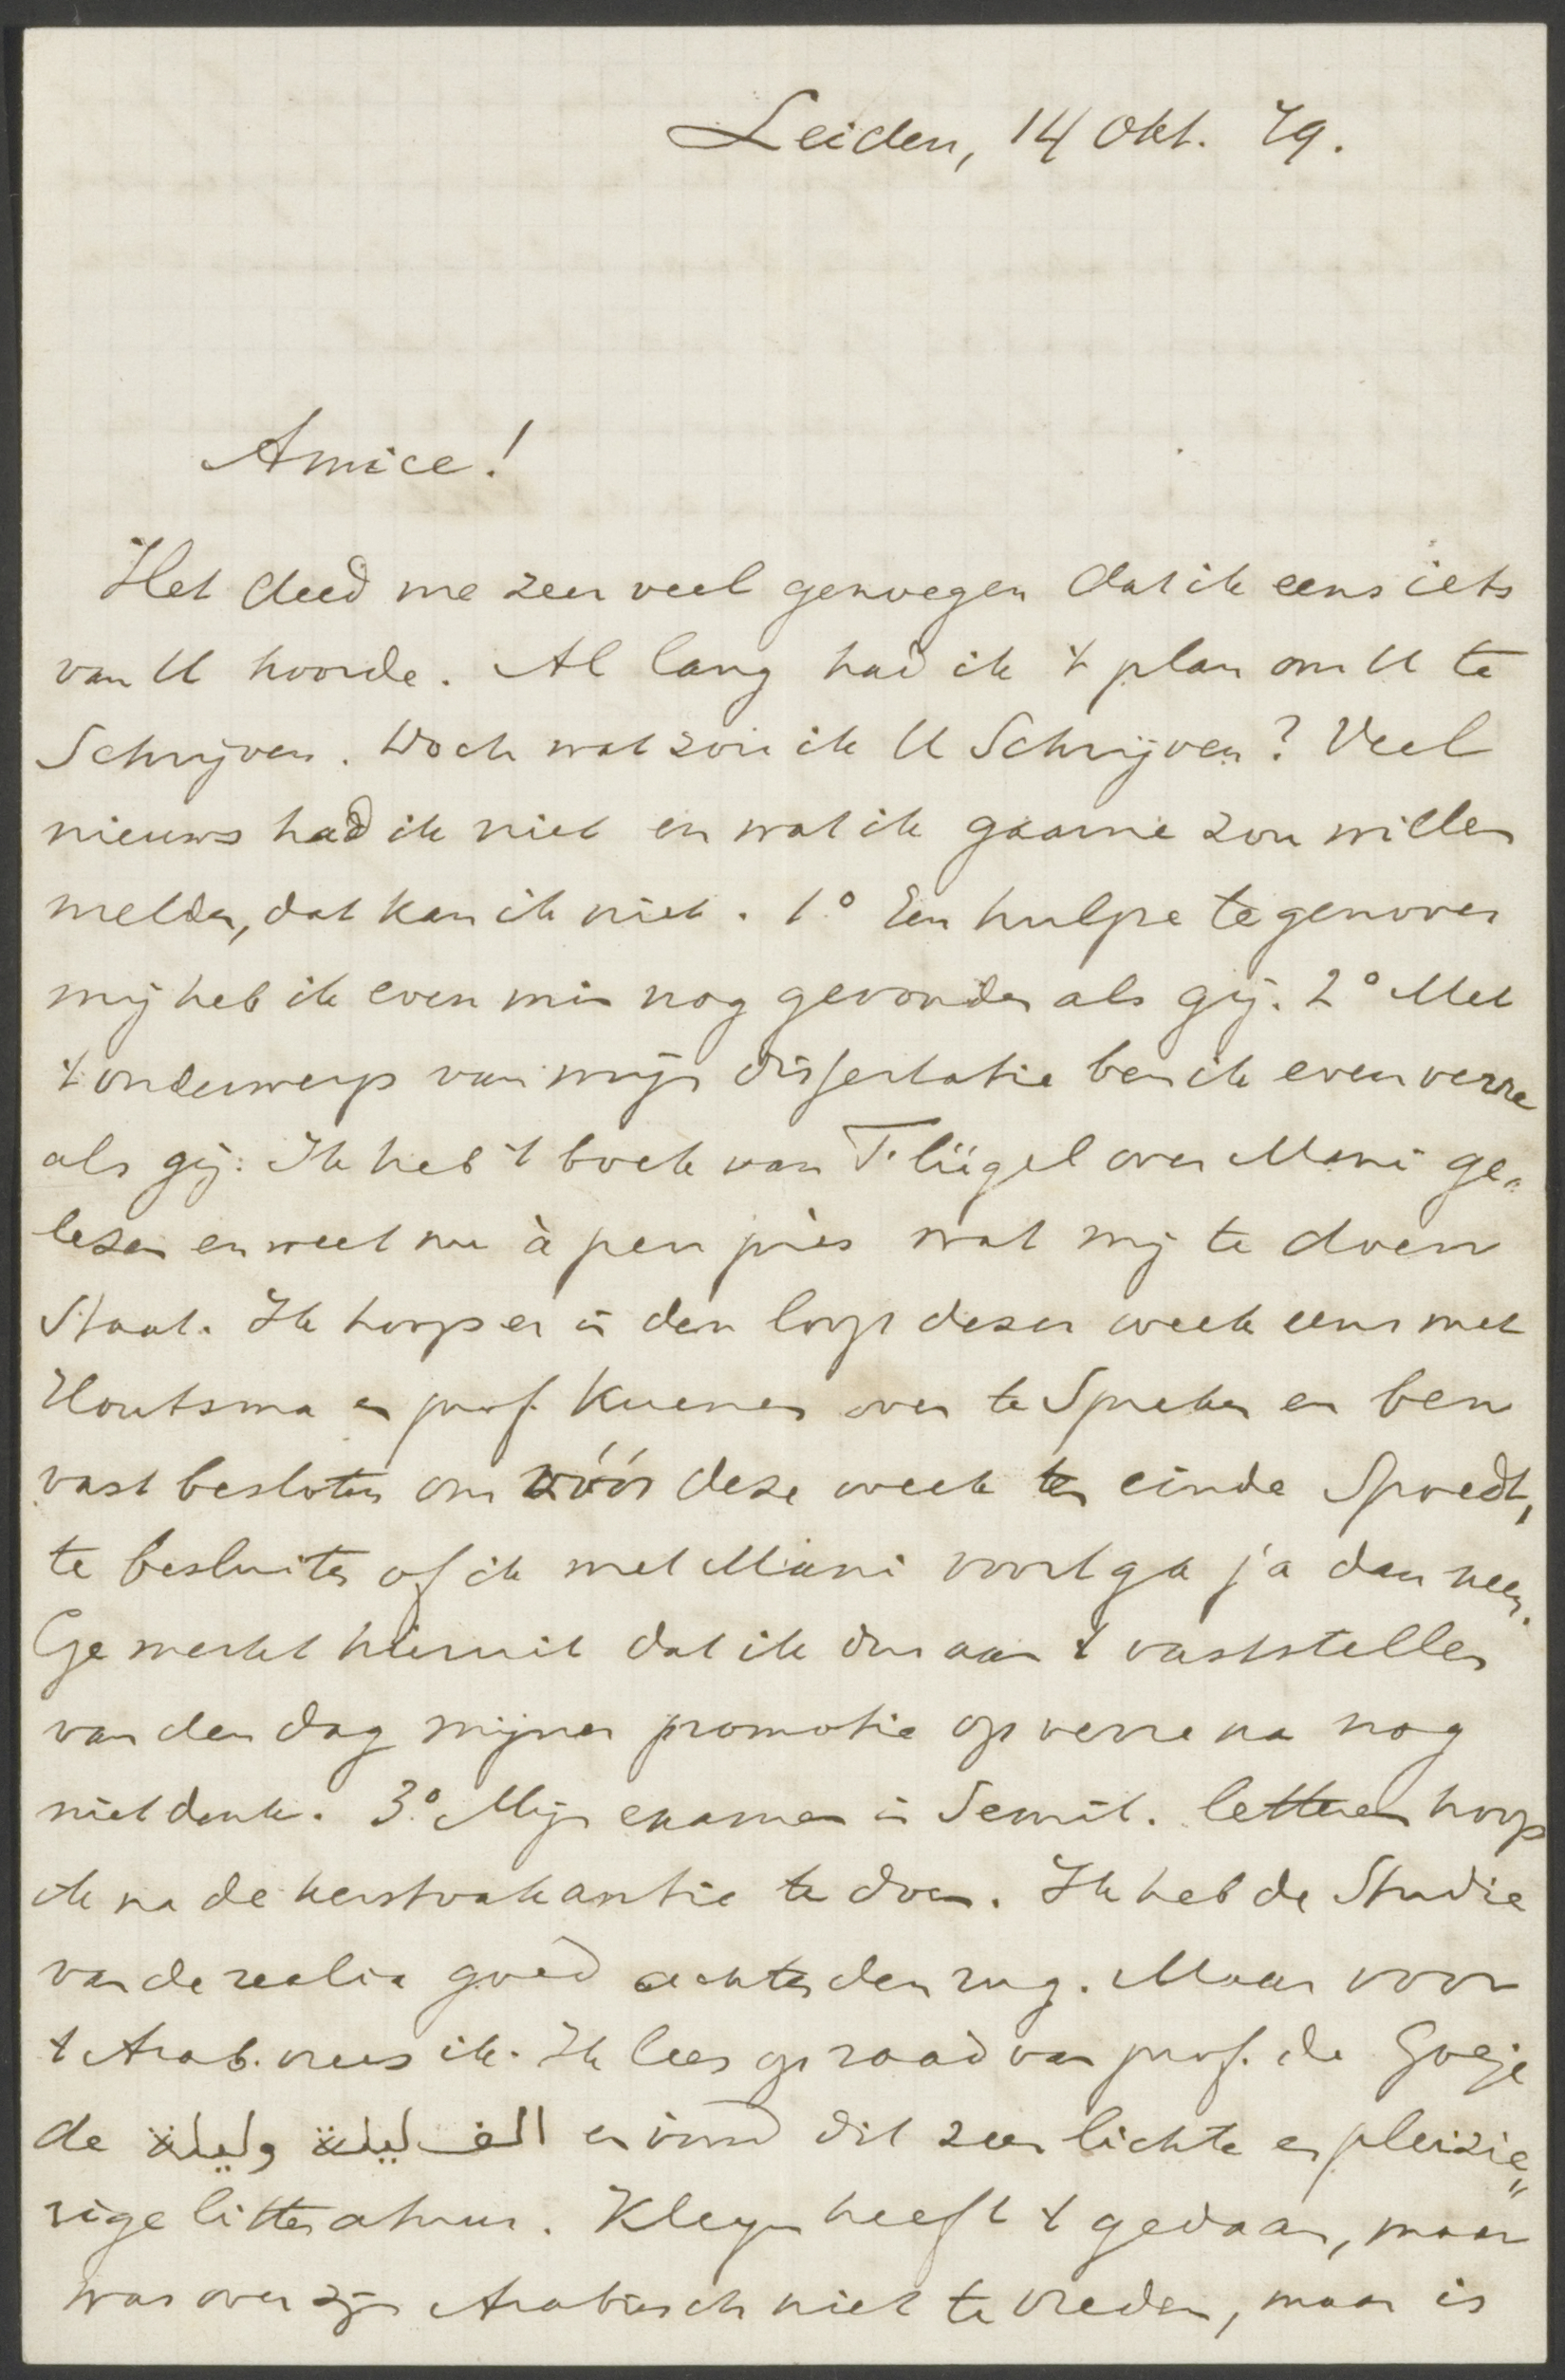 Leiden, 14 Okt. 79.
Amice!
Het deed me zeer veel genoegen dat ik eens iets
van U hoorde. Al lang had ik 't plan om U te
schrijven. Doch wat zou ik U schrijven? Veel
nieuws had ik niet en wat ik gaarne zou willen
melden, dat kan ik niet. 1.º Een hulpe tegenover
mij heb ik even min nog gevonden als gij. 2º Met
't onderwerp van mijn dissertatie ben ik even verre
als gij. Ik heb 't boek van Flügel over Mani ge„
lezen en weet nu à peu près wat mij te doen
staat. Ik hoop er in den loop dezer week eens met
Houtsma en prof. Kuenen over te spreken en ben
vast besloten om vóór deze week ten einde spoedt,
te besluiten of ik met Mani voortga ja dan neen.
Ge merkt hieruit dat ik dus aan 't vaststellen
van den dag mijner promotie op verre na nog
niet denk. 3.º Mijn examen in Semit. letteren hoop
ik na de kerstvakantie te doen. Ik heb de studie
van de realia goed achter den rug. Maar voor
't Arab. vrees ik. Ik lees op raad van prof. de Goeje
de الف ليلة وليلة en vind dit zeer lichte en pleizie„
rige litteratuur. Kleyn heeft 't gedaan, maar
was over zijn Arabisch niet te vreden, maar is